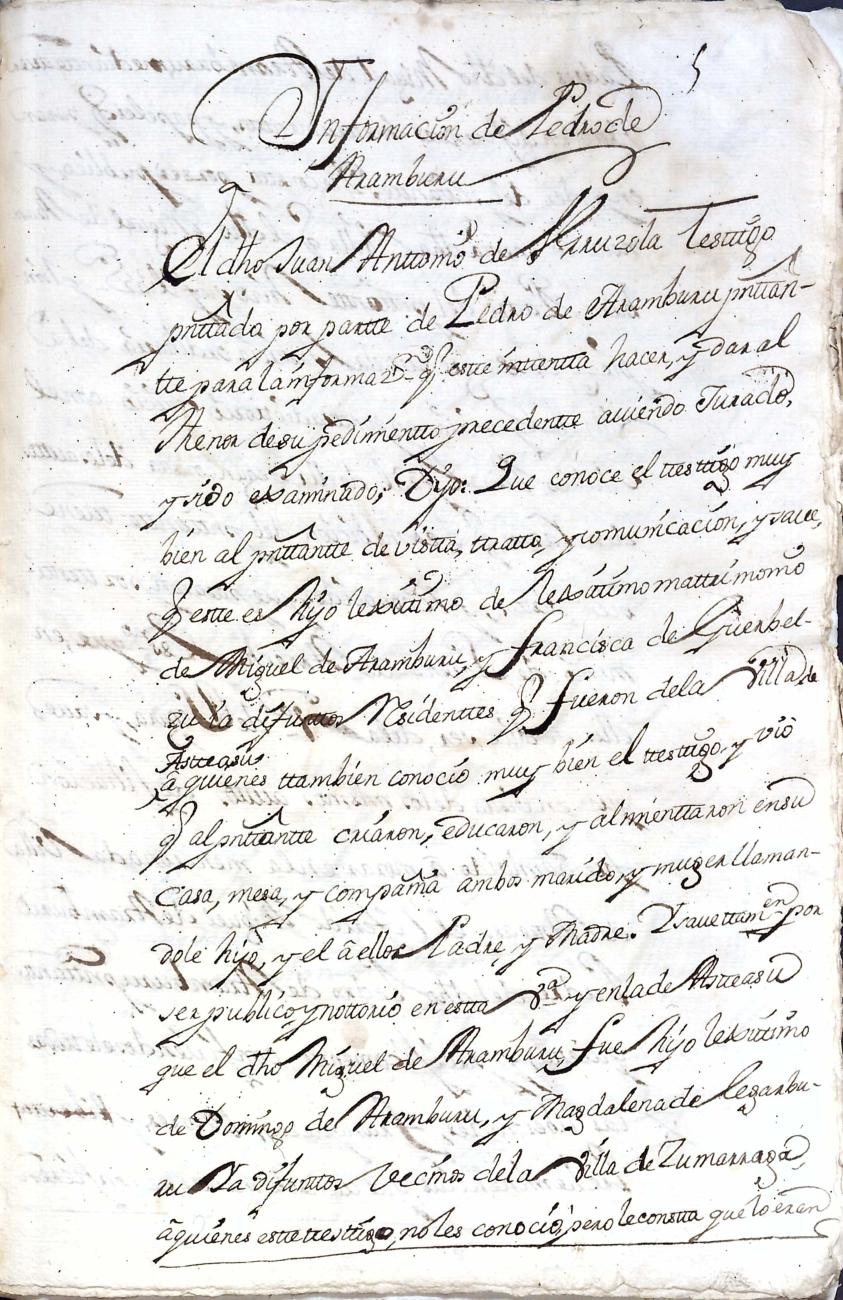 5
Informacion de Pedro de
Aramburu
El dho Juan Anttonio de Urruzola testtigo
pnttado por partte de Pedro de Aramburu pnttan-
tte para la informaz.on q estte intentta hacer, y dar al
thenor de su pedimentto precedentte auiendo Jurado,
y sido examinado, Dijo: Que conoce el ttesttigo muy
bien al pnttantte de vistta, ttratto, y comunicacion, y saue,
q estte es hijo lexittimo de lexittimo mattrimonio
de Miguel de Aramburu, y Francisca de Guerbel-
zu ia difunttos Residenttes q fueron de la Villa de
Astteasu
â quienes ttambien conocio muy bien el ttesttigo, y vio
q al pnttantte criaron, educaron, y alimenttaron en su
Casa, mesa, y compañia ambos marido, y muger llaman-
dole hijo, y el â ellos Padre, y Madre. Y saue ttamen por
ser publico, y nottorio en estta Va. y en la de Astteasu
que el dho Miguel de Aramburu, fue hijo lexittimo
de Domingo de Aramburu, y Magdalena de Legarbu-
ru Ya difunttos Vecinos de la Villa de Zumarraga,
â quienes estte ttesttigo, no les conocio, pero le constta que lo eran